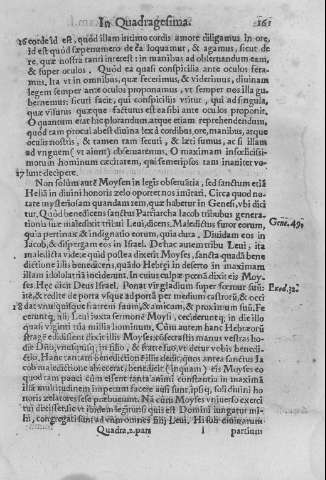 In Quadragesima. 161
26 corde id est, quod illam intimo cordis amore diligamus. In ore,
id est quod sæpenumero de ea loquamur, & agamus, sicut de
re, quæ nostra tanti interest: in manibus ad obseruandum eam,
& super oculos. Quod ea quasi conspicilia ante oculos fera-
mus, ita vt in omnibus, quæ fecerimus, & viderimus, diuinam
legem semper ante oculos proponamus, vt semper nos illa gu-
bernemus: sicuti facit, qui conspicilijs vtitur, qui ad singula,
quæ visurus quæque facturus est ea sibi ante oculos proponit.
O quantum est hic plorandum, atque etiam reprehendendum,
quod tam procul absest diuina lex à cordibus, ore, manibus, atque
oculis nostris, & tamen tam securi, & læti sumus, ac si illam
ad vnguem (vt aiunt) obseruaremus, O maximam infœlicissi-
morum hominum cæcitatem, qui semetipsos tam inaniter vo-
17 lunt decipere.
Non solùm autē Moysen in legis obseruātia, sed sanctum etiā
Heliā in diuini honoris zelo oportet nos imitari. Circa quod no-
tare mysteriosam quandam rem, quæ habetur in Genesi, vbi dici
tur, Quòd benedicens sanctus Patriarcha Iacob tribubus genera-
tionis suæ maledicit tribui Leui, dicens, Maledictus furor eorum, Gene.49.
quia pertinax & indignatio eorum, quia dura. Diuidam eos in
Iacob, & dispergam eos in Israel. De hac autem tribu Leui, ita
maledicta vide quid postea dixerit Moyses, sancta quadā bene
dictione illis benedicens, quādo Hebræi in deserto in maximam
illam idololatriā inciderunt. In cuius culpæ pœnā dixit eis Moy-
ses. Hęc dicit Deus Israel. Ponat vir gladium super femur suū: Exod.32.
ite, & redite de porta vsque ad portā per medium castrorū, & occi
18 dat vnusquisque fratrem suum, & amicum, & proximum suū. Fe
ceruntq; filij Leui iuxta sermonē Moysi, cecideruntq; in die illo
quasi viginti tria millia hominum, Cùm autem hanc Hebræorū
stragē edidissent dixit illis Moyses: cōsecrastis manus vestras ho-
die Dño, vnusquisq; in filio, & fratre suo, vt detur vobis benedi-
ctio. Hanc tantam benedictionē illis dedit, quos antea sanctus Ia
cob maledictione affecerat, benedicit (inquam) eis Moyses eo
quod tam pauci cùm essent tanta animi constantia in maximā
illā multitudinem impetum facere ausi sunt, ipsiq; soli diuini ho
noris zelatores sese præbuerunt. Nā cùm Moyses vniuerso exerci
tui dixisset, siue vt ibidem legitur: si quis est Domini iungatur mi-
hi, congregati sunt ad vnum omnes filij Leui, Hi soli diuinarum
Quadra.2.pars l partium